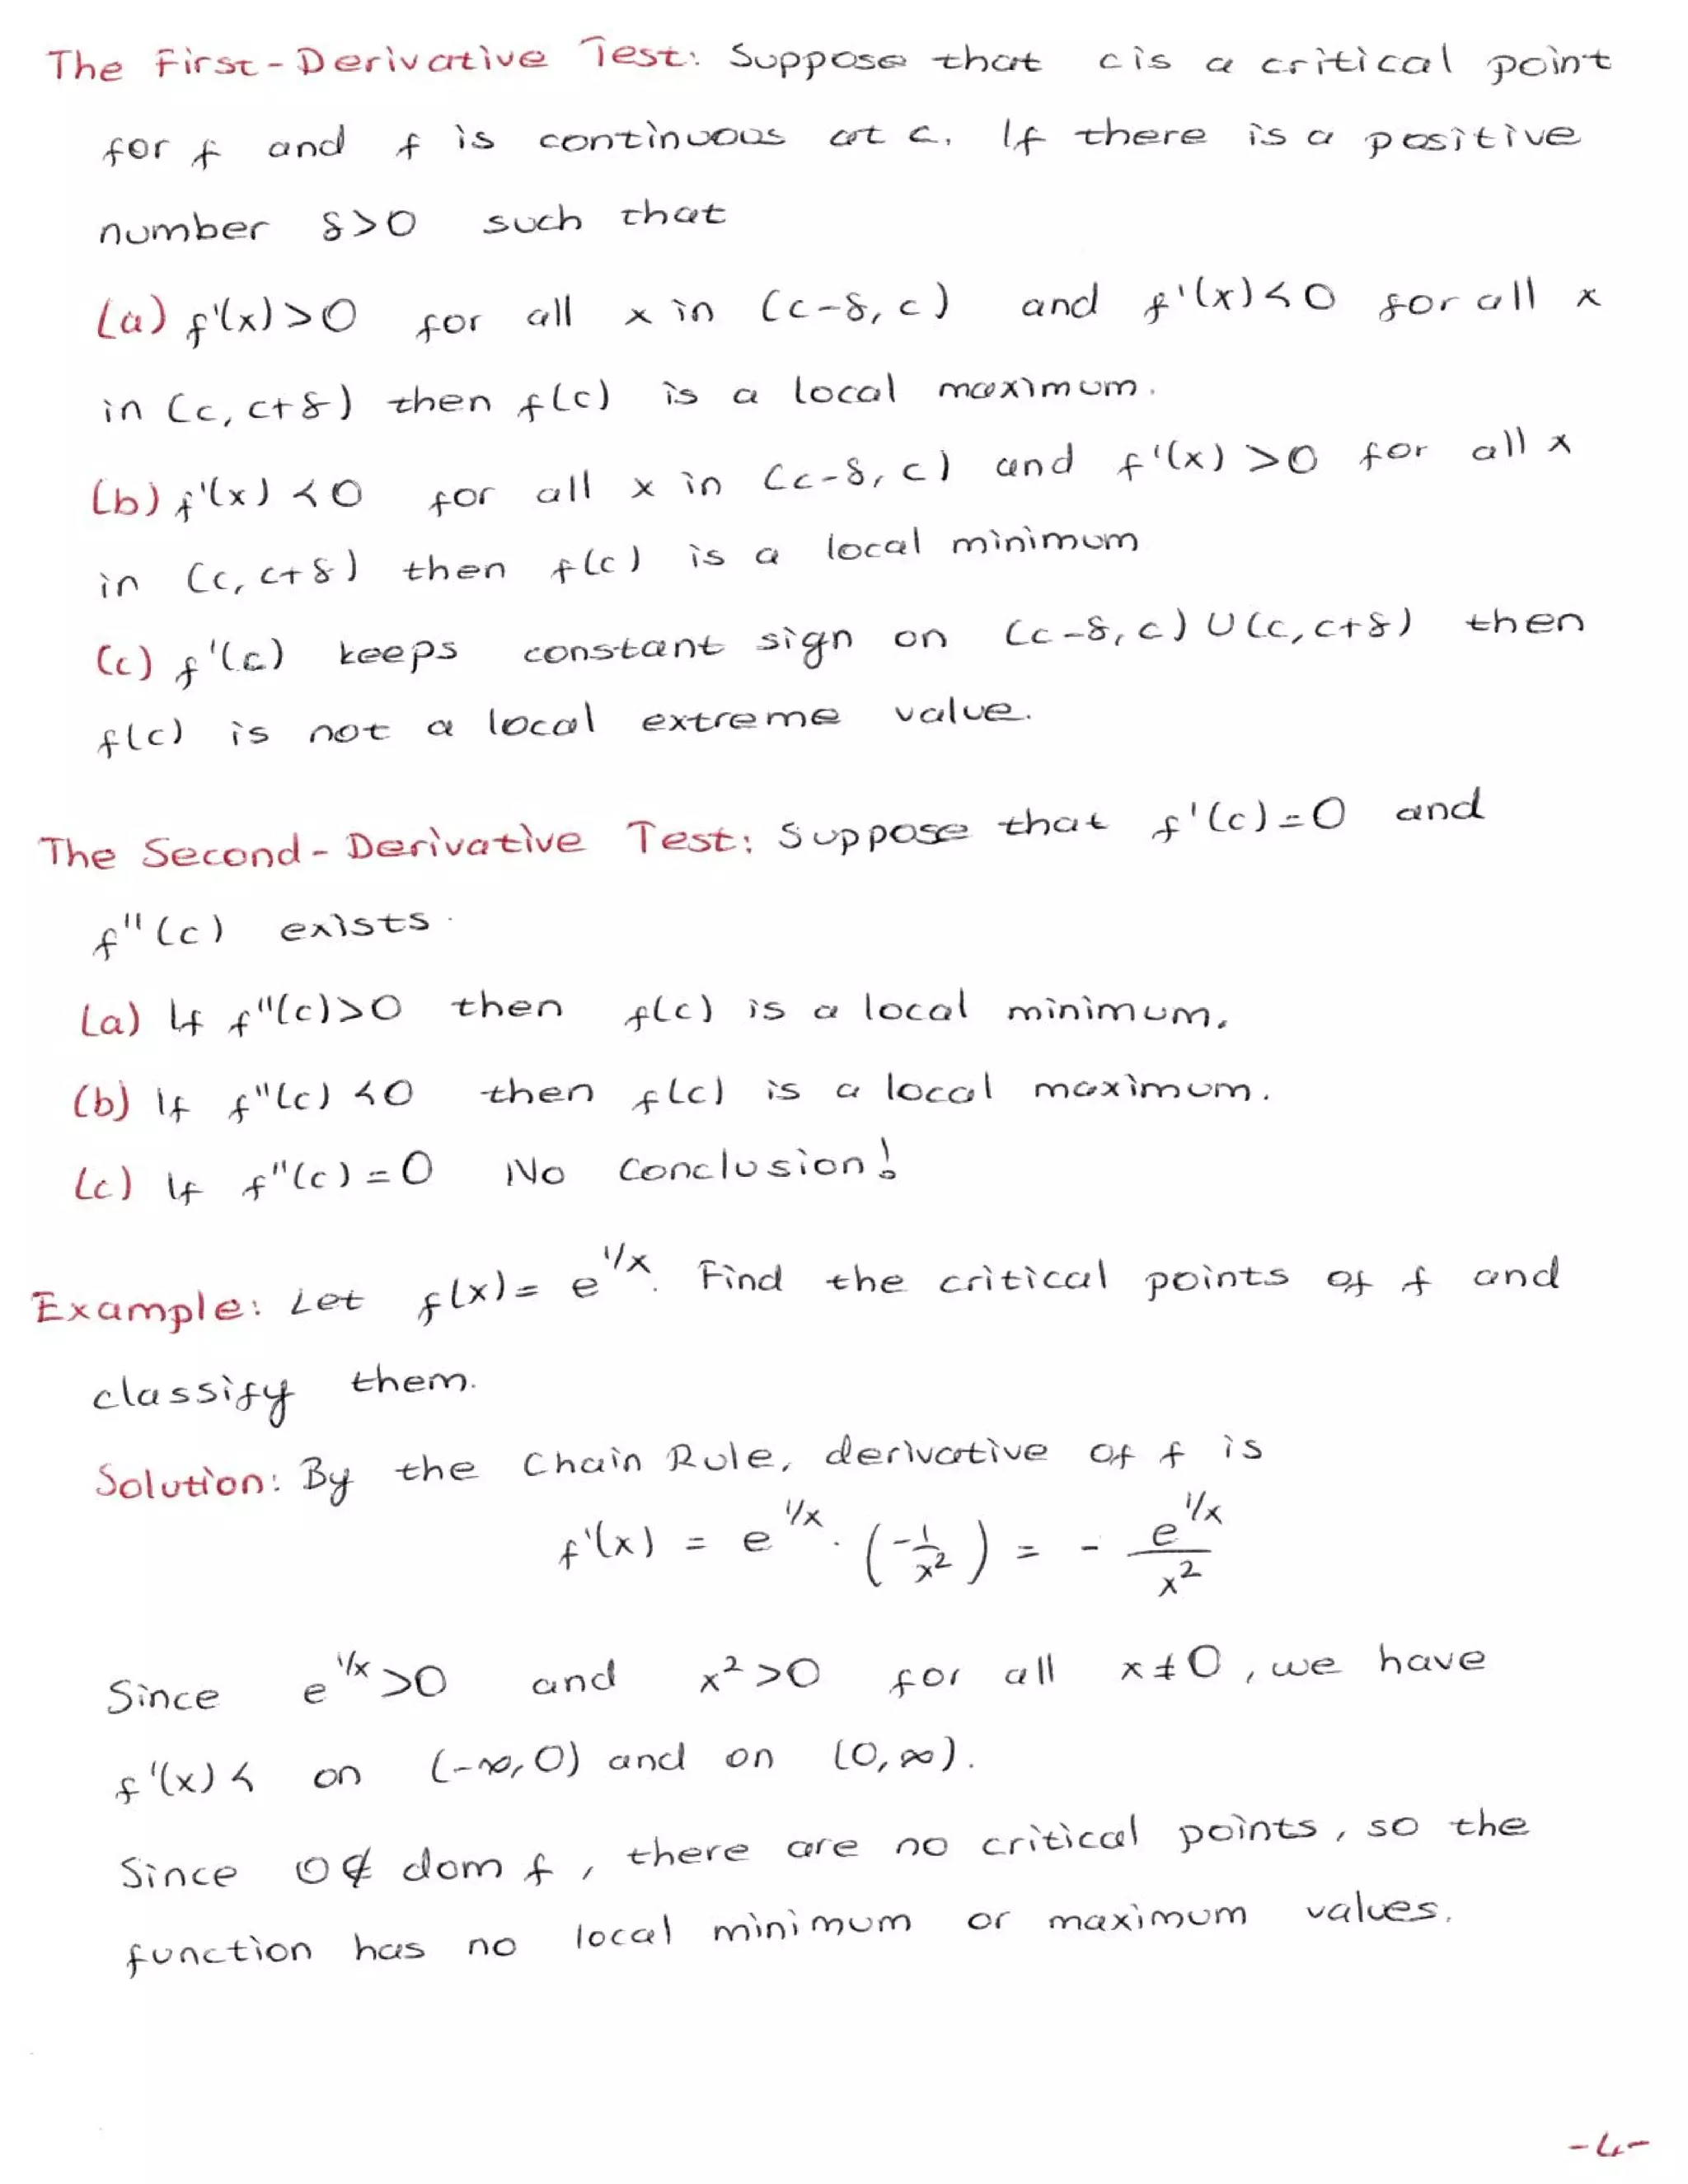 The First-Derivative Test: Suppose that c is a critical point
for f and f is continuous at c. If there is a positive
number δ>0 such that
(a) f'(x)>0 for all x in (c-δ, c) and f'(x)<0 for all x
in (c, c+δ) then f(c) is a local maximum.
(b) f'(x)<0 for all x in (c-δ, c) and f'(x)>0 for all x
in (c, c+δ) then f(c) is a local minimum
(c) f'(c) keeps constant sign on (c-δ, c) ∪ (c, c+δ) then
f(c) is not a local extreme value.
The Second-Derivative Test: Suppose that f'(c)=0 and
f''(c) exists.
(a) If f''(c)>0 then f(c) is a local minimum.
(b) If f''(c)<0 then f(c) is a local maximum.
(c) If f''(c)=0 No Conclusion!
Example: Let f(x)= e^{1/x}. Find the critical points of f and
classify them.
Solution: By the Chain Rule, derivative of f is
f'(x) = e^{1/x} · (-1/x²) = - e^{1/x}/x²
Since e^{1/x}>0 and x²>0 for all x≠0, we have
f'(x)< on (-∞,0) and on (0,∞).
Since 0∉ dom f, there are no critical points, so the
function has no local minimum or maximum values.
-4-